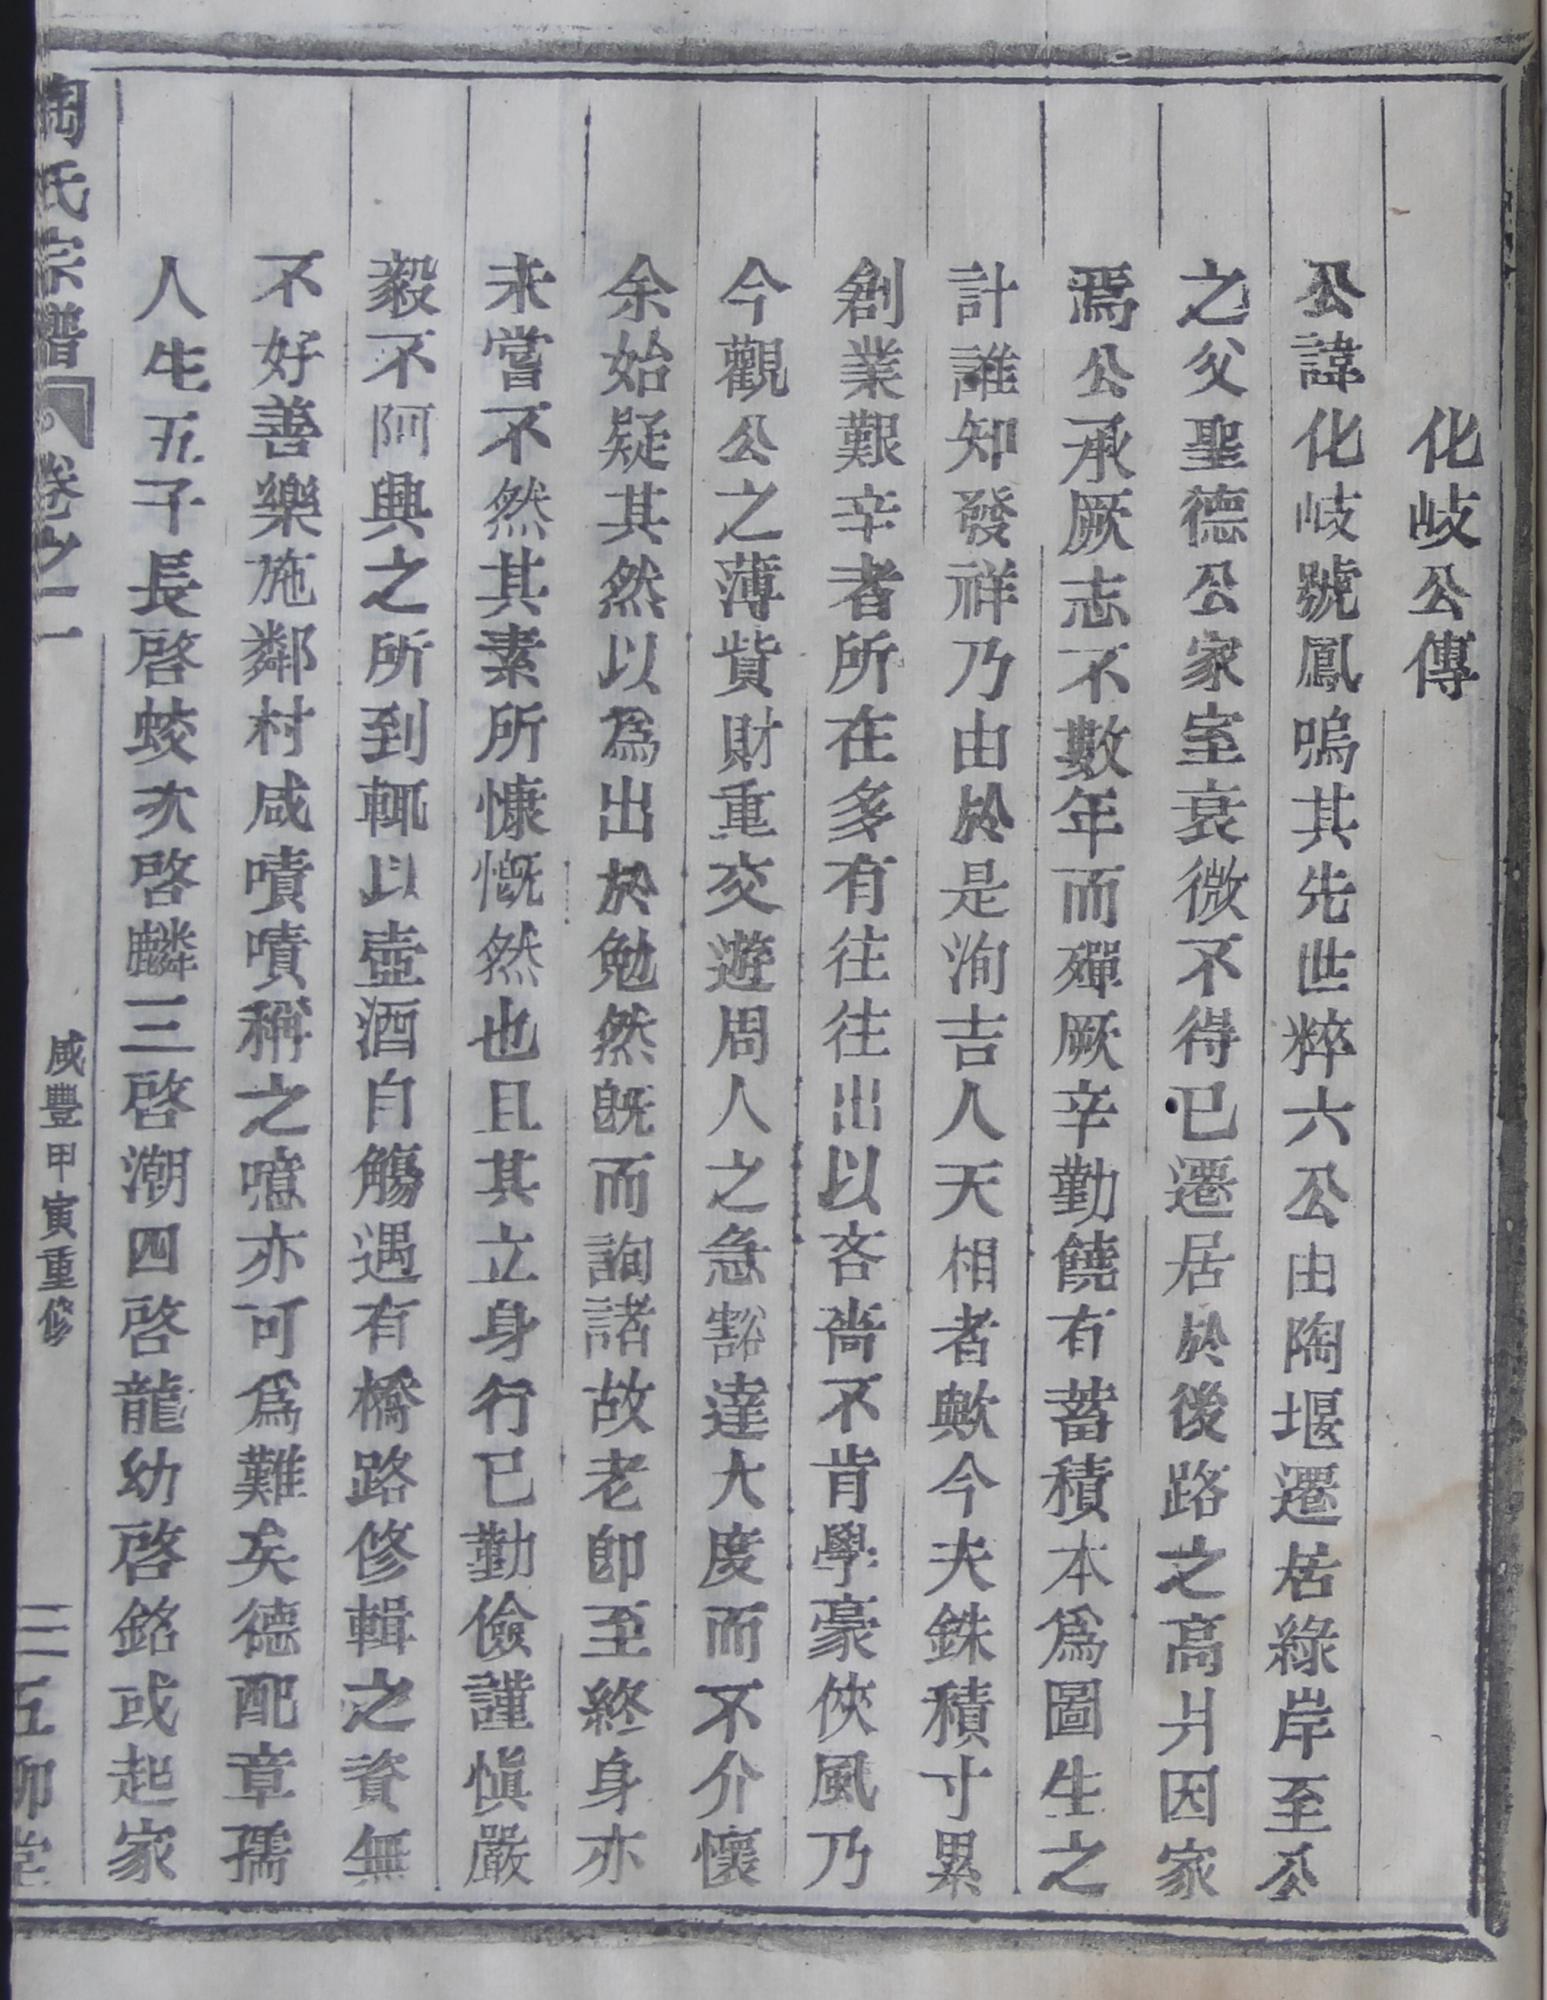 化岐公傳
公諱化岐號鳳鳴其先世粹六公由陶堰遷居綠岸至公
之父聖德公家室衰微不得已遷居於後路之高爿因家
焉公承厥志不數年而殫厥辛勤饒有蓄積本爲圖生之
計誰知發祥乃由於是洵吉人天相者歟今夫銖積寸累
創業艱辛者所在多有往往出以吝嗇不肯學豪俠風乃
今觀公之薄貲財重交遊周人之急豁達大度而不介懷
余始疑其然以爲出於勉然旣而詢諸故老卽至終身亦
未嘗不然其素所慷慨然也且其立身行已勤儉謹愼嚴
毅不阿興之所到輒以壺酒自觴遇有橋路修輯之資無
不好善樂施鄰村咸嘖嘖稱之噫亦可爲難矣德配章孺
人生五子長啓蛟次啓麟三啓潮四啓龍幼啓銘或起家
陶氏宗譜 卷之二 咸豐甲寅重修 三五柳堂